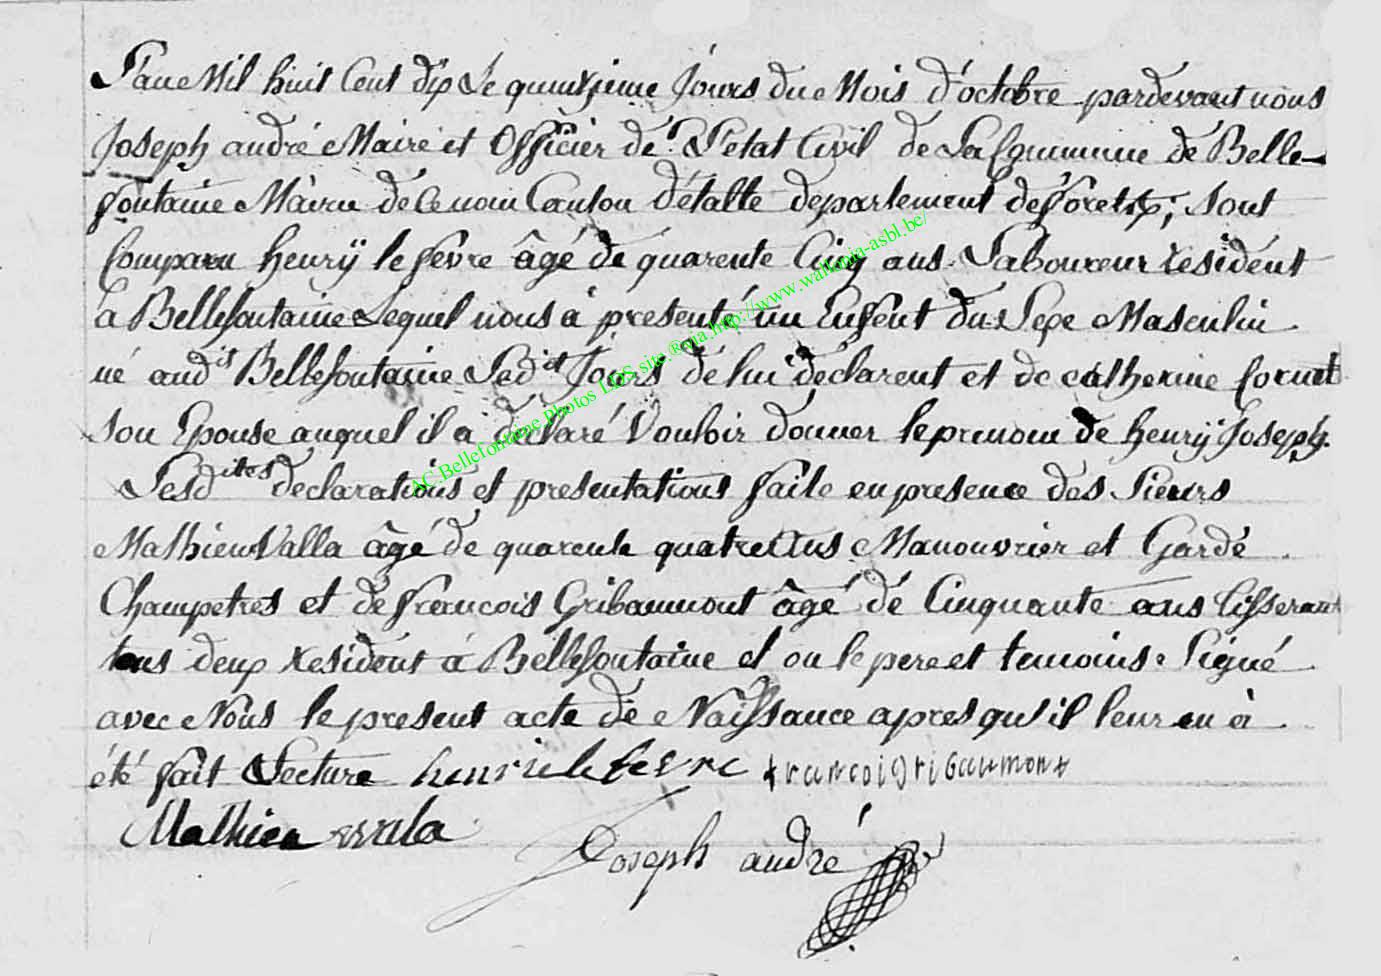 L'an Mil huit Cent dix Le quinzieme Jours du Mois d'octobre pardevant nous
Joseph andré Maire et Officier de L'etat Civil de La Commune de Belle-
fontaine Mairie de Ce nom Canton d'étalle departement de forets; sont
Comparu henrÿ le fevre âgé de quarente Cinq ans Laboureur résident
à Bellefontaine Lequel nous à presenté un Enfent du Sexe Masculin
né audit Bellefontaine Ledit Jours de lui déclarent et de catherine cornet
son Epouse auquel il a déclaré Vouloir donner le prenom de henrÿ Joseph.
Lesdites declarations et presentations faite en presence des Sieurs
Mathieu Valla âgé de quarente quatre Ans Manouvrier et Garde
Champetres et de francois Gribaumont âgé de Cinquante ans tisserant
tous deux résident à Bellefontaine et ou le pere et temoins Signé
avec Nous le present acte de Naissance apres qu'il leur en à
été fait Lecture henri le fevre francoi gribaumont
Mathieu valla Joseph andré
AC.Bellefontaine Photos LDS site ®via http://www.wallonia-asbl.be/